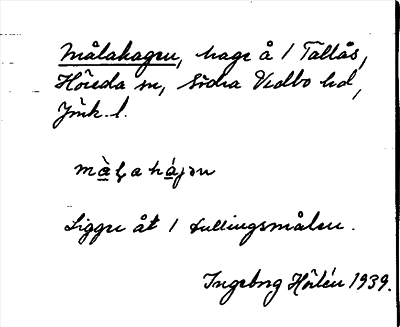 Målahagen, hage å 1 Tallås,
Höreda sn, Södra Vedbo hd,
Jönk. l.
màḷahájen
Ligger åt 1 Lullingsmålen.
Ingeborg Hörlén 1939.